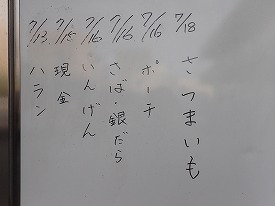 7/18 さつまいも
7/16 ポーチ
7/16 さば・銀だら
7/16 いんげん
7/15 現金
7/13 ハラン